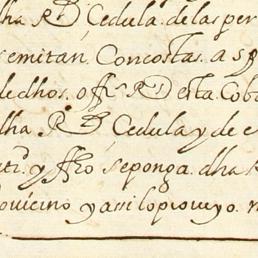 dha Rl Cedula. de las per
remitan. Con costas. a s
de dhos. offs Rs esta. Cob
dha Rl Cedula y de e
y ffho se ponga. dha R
ouicino y assi lo proueyo.